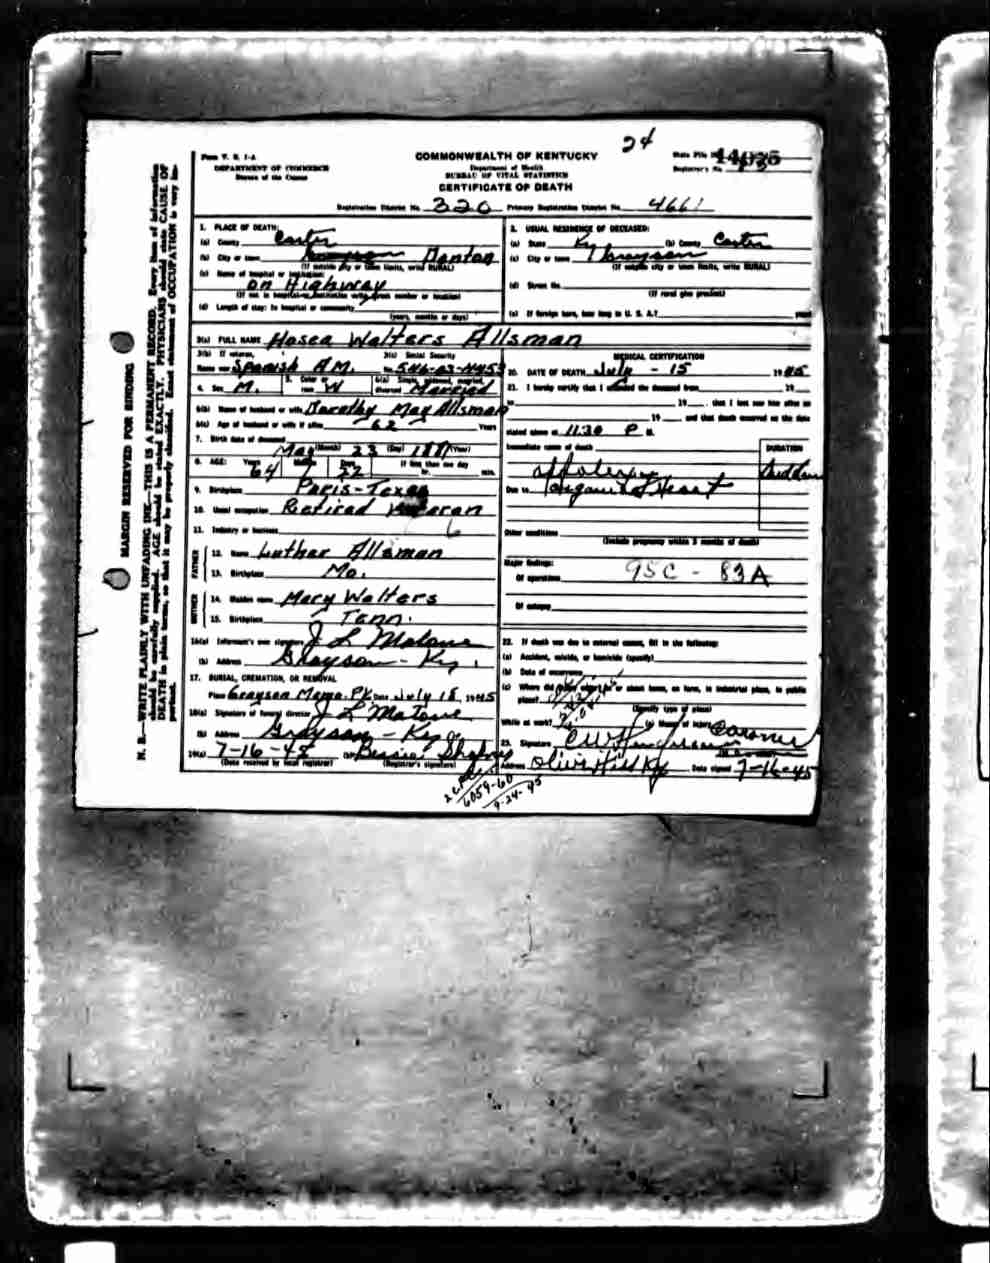 24
Form V. S. 1-A
DEPARTMENT OF COMMERCE
Bureau of the Census
COMMONWEALTH OF KENTUCKY
Department of Health
BUREAU OF VITAL STATISTICS
CERTIFICATE OF DEATH
State File No.
Registrar's No.
Registration District No. 320 Primary Registration District No. 4661
1. PLACE OF DEATH:
(a) County Carter
(b) City or town Denton
(If outside city or town limits, write RURAL)
(c) Name of hospital or institution:
on Highway
(If not in hospital or institution write street number or location)
(d) Length of stay: In hospital or community
(years, months or days)
2. USUAL RESIDENCE OF DECEASED:
(a) State Ky (b) County Carter
(c) City or town Grayson
(If outside city or town limits, write RURAL)
(d) Street No.
(If rural give precinct)
(e) If foreign born, how long in U. S. A.? years
3(a) FULL NAME Hosea Walters Allsman
3(b) If veteran,
Name war Spanish AM.
3(c) Social Security
No.
4. Sex M. 5. Color or race W 6(a) Single, widowed, married, divorced Married
6(b) Name of husband or wife Dorothy May Allsman
6(c) Age of husband or wife if alive 62 Years
7. Birth date of deceased
May (Month) 23 (Day) (Year)
8. AGE: Years 64 Months 1 Days 22 If less than one day hr. min.
9. Birthplace Paris-Texas
10. Usual occupation Retired
11. Industry or business
FATHER
12. Name Luther Allsman
13. Birthplace Mo.
MOTHER
14. Maiden name Mary Walters
15. Birthplace Tenn.
16(a) Informant's own signature J L Malone
(b) Address Grayson - Ky.
17. BURIAL, CREMATION, OR REMOVAL
Place Grayson Mem. Pk Date July 18 1945
18(a) Signature of funeral director J L Malone
(b) Address Grayson - Ky
19(a) 7-16-45 (b) Bessie
(Date received by local registrar) (Registrar's signature)
MEDICAL CERTIFICATION
20. DATE OF DEATH July - 15 1945
21. I hereby certify that I attended the deceased from 19
to 19 , that I last saw him alive on
19 and that death occurred on the date
stated above at 11:30 P M.
Immediate cause of death DURATION
Due to organic Heart
Other conditions
(Include pregnancy within 3 months of death)
Major findings:
Of operations 95C - 83A
Of autopsy
22. If death was due to external causes, fill in the following:
(a) Accident, suicide, or homicide (specify)
(b) Date of occurrence
(c) Where did injury occur? or about home, on farm, in industrial place, in public
place?
(Specify type of place)
While at work? (e) Means of injury
23. Signature Coroner
Address Olive Hill Ky Date signed 7-16-45
6059-60
9-24-45
MARGIN RESERVED FOR BINDING
N. B.—WRITE PLAINLY WITH UNFADING INK—THIS IS A PERMANENT RECORD. Every item of information
should be carefully supplied. AGE should be stated EXACTLY. PHYSICIANS should state CAUSE OF
DEATH in plain terms, so that it may be properly classified. Exact statement of OCCUPATION is very im-
portant.